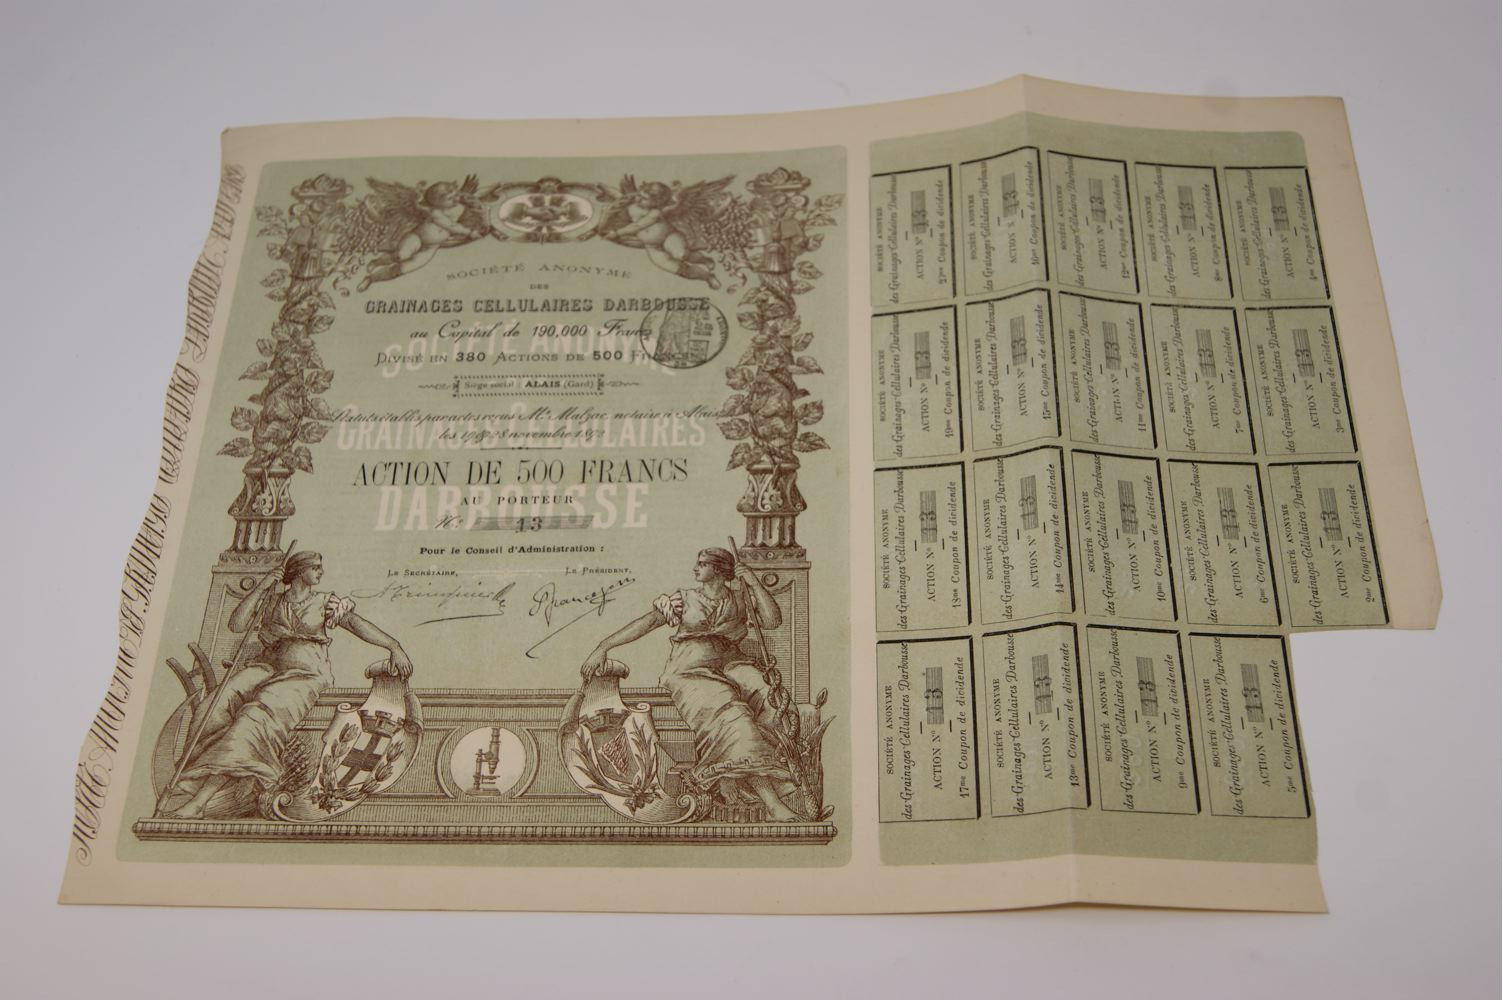 SOCIÉTÉ ANONYME
DES
GRAINAGES CELLULAIRES DARBOUSSE
au Capital de 190,000 Francs
DIVISÉ EN 380 ACTIONS DE 500 FRANCS
Siège social : ALAIS (Gard)
Statuts établis par actes reçus Me Malzac, notaire à Alais
les novembre
SOCIÉTÉ ANONYME
GRAINAGES CELLULAIRES
DARBOUSSE
ACTION DE 500 FRANCS
AU PORTEUR
No 13
Pour le Conseil d'Administration :
LE SECRÉTAIRE,
LE PRÉSIDENT,
SOCIÉTÉ ANONYME
des Grainages Cellulaires Darbousse
ACTION No 13
Coupon de dividende
SOCIÉTÉ ANONYME
des Grainages Cellulaires Darbousse
ACTION N 13
16me Coupon de dividende
SOCIÉTÉ ANONYME
des Grainages Cellulaires Darbousse
ACTION No 13
12me Coupon de dividende
SOCIÉTÉ ANONYME
des Grainages Cellulaires Darbousse
ACTION No 13
8me Coupon de dividende
SOCIÉTÉ ANONYME
des Grainages Cellulaires Darbousse
ACTION No 13
4me Coupon de dividende
SOCIÉTÉ ANONYME
des Grainages Cellulaires Darbousse
ACTION No 13
19me Coupon de dividende
SOCIÉTÉ ANONYME
des Grainages Cellulaires Darbousse
ACTION No 13
15me Coupon de dividende
SOCIÉTÉ ANONYME
des Grainages Cellulaires Darbousse
ACTION No 13
11me Coupon de dividende
SOCIÉTÉ ANONYME
des Grainages Cellulaires Darbousse
ACTION No 13
7me Coupon de dividende
SOCIÉTÉ ANONYME
des Grainages Cellulaires Darbousse
ACTION No 13
3me Coupon de dividende
SOCIÉTÉ ANONYME
des Grainages Cellulaires Darbousse
ACTION No 13
18me Coupon de dividende
SOCIÉTÉ ANONYME
des Grainages Cellulaires Darbousse
ACTION No 13
14me Coupon de dividende
SOCIÉTÉ ANONYME
des Grainages Cellulaires Darbousse
ACTION No 13
10me Coupon de dividende
SOCIÉTÉ ANONYME
des Grainages Cellulaires Darbousse
ACTION No 13
6me Coupon de dividende
SOCIÉTÉ ANONYME
des Grainages Cellulaires Darbousse
ACTION No 13
2me Coupon de dividende
SOCIÉTÉ ANONYME
des Grainages Cellulaires Darbousse
ACTION No 13
17me Coupon de dividende
SOCIÉTÉ ANONYME
des Grainages Cellulaires Darbousse
ACTION No 13
13me Coupon de dividende
SOCIÉTÉ ANONYME
des Grainages Cellulaires Darbousse
ACTION No 13
9me Coupon de dividende
SOCIÉTÉ ANONYME
des Grainages Cellulaires Darbousse
ACTION No 13
5me Coupon de dividende